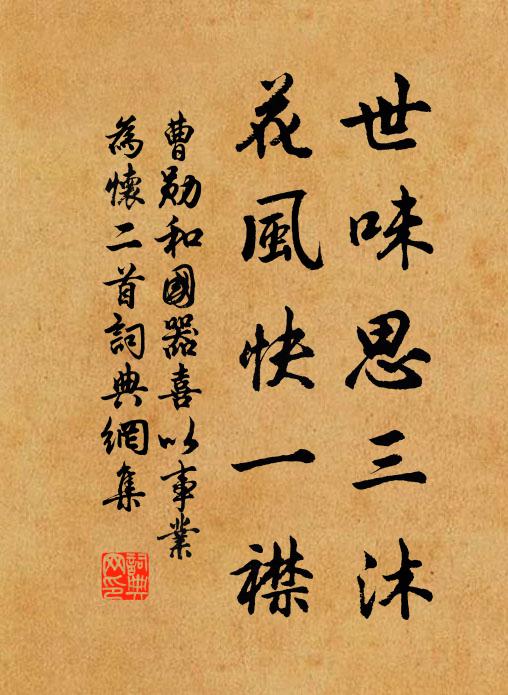 世味思三沐
花風快一襟
曹勛和國器喜以事業
為懷二首詞典網集
詞典网印